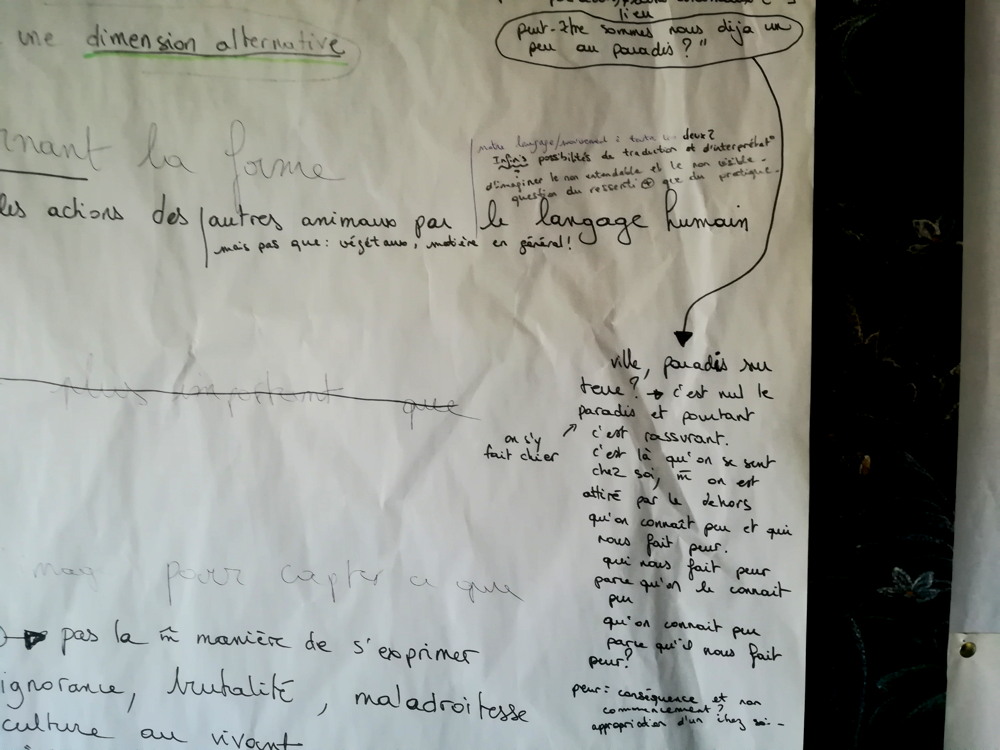 une dimension alternative
lieu
peut-être sommes nous déjà un
peu au paradis ? "
rnant la forme
notre langage/mouvement : entre les deux ?
Infinis possibilités de traduction et d'interprétat°
d'imaginer le non entendable et le non visible -
question du ressenti ⊕ que du pratique -
les actions des autres animaux par le langage humain
mais pas que : végétaux, matière en général !
plus important que
ville, paradis sur
terre ? → c'est nul le
paradis et pourtant
c'est rassurant.
on s'y
fait chier
c'est là qu'on se sent
chez soi, m̄ on est
attiré par le dehors
qu'on connaît peu et qui
nous fait peur.
qui nous fait peur
parce qu'on le connait
peu
qu'on connait peu
parce qu'il nous fait
peur ?
peur : conséquence et non
commencement ?
appropriation d'un chez soi -
pour capter ce que
pas la m̄ manière de s'exprimer
ignorance, brutalité, maladroitesse
culture au vivant